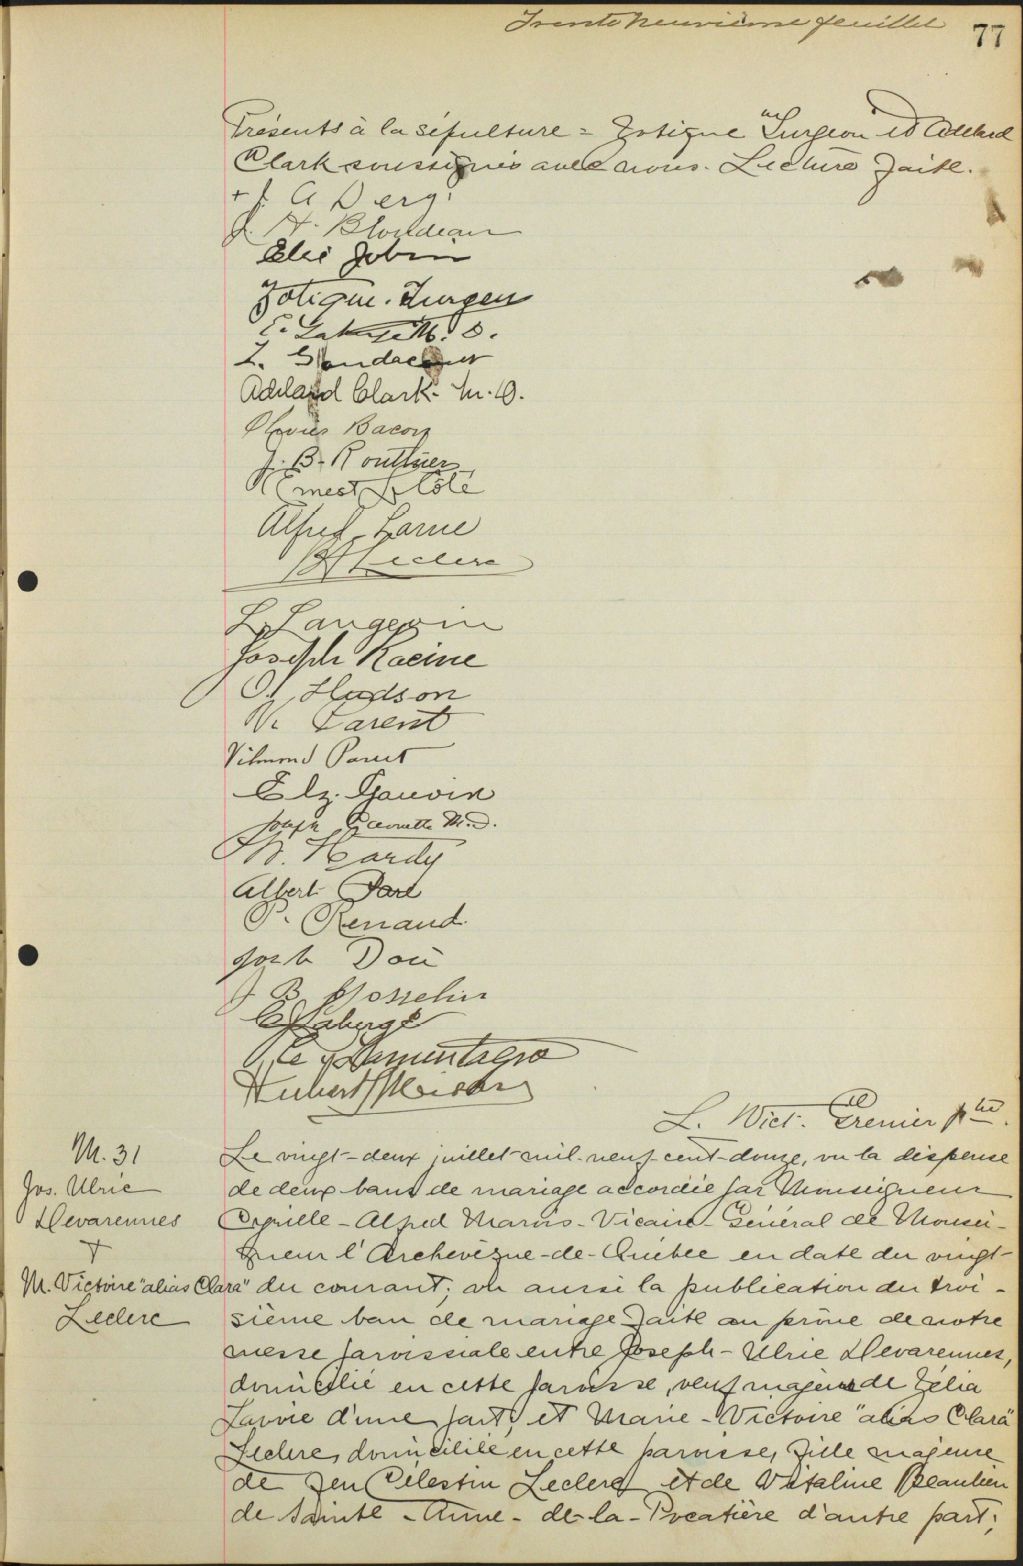 Trente neuvième feuillet
77
Présents à la sépulture = Zotique Turgeon et Adélard
Clark soussignés avec nous. Lecture faite.
+ J. A Derg:
J. H. Blondeau
Elie Jobin
Zotique. Turgeon
E. M. D.
Z.
Adélard Clark. M. D.
Bacon
J. B. Routhier
Ernest Côté
Alfred Larue
Leclerc
L. Langevin
Joseph Racine
O. Hudson
V. Parent
Vilmond Parent
Elz. Gauvin
Joseph M. D.
Hardy
Albert Paré
P. Renaud
Doré
J B Gosselin
Laberge
Lamontagne
Hubert
L. Vict. Grenier ptre.
M. 31
Jos. Ulric
Devarennes
+
M. Victoire "alias Clara"
Leclerc
Le vingt-deux juillet mil-neuf-cent-douze, vu la dispense
de deux bans de mariage accordée par Monseigneur
Cyrille-Alfred Marois-Vicaire-Général de Monsei-
gneur l'Archevêque-de-Québec en date du vingt
du courant; vu aussi la publication du troi-
sième ban de mariage faite au prône de notre
messe paroissiale entre Joseph-Ulric Devarennes,
domicilié en cette paroisse, veuf majeur de Zélia
Lavoie d'une part, et Marie-Victoire "alias Clara"
Leclerc, domiciliée en cette paroisse, fille majeure
de feu Célestin Leclerc et de Vitaline Beaulieu
de Sainte-Anne-de-la-Pocatière d'autre part;